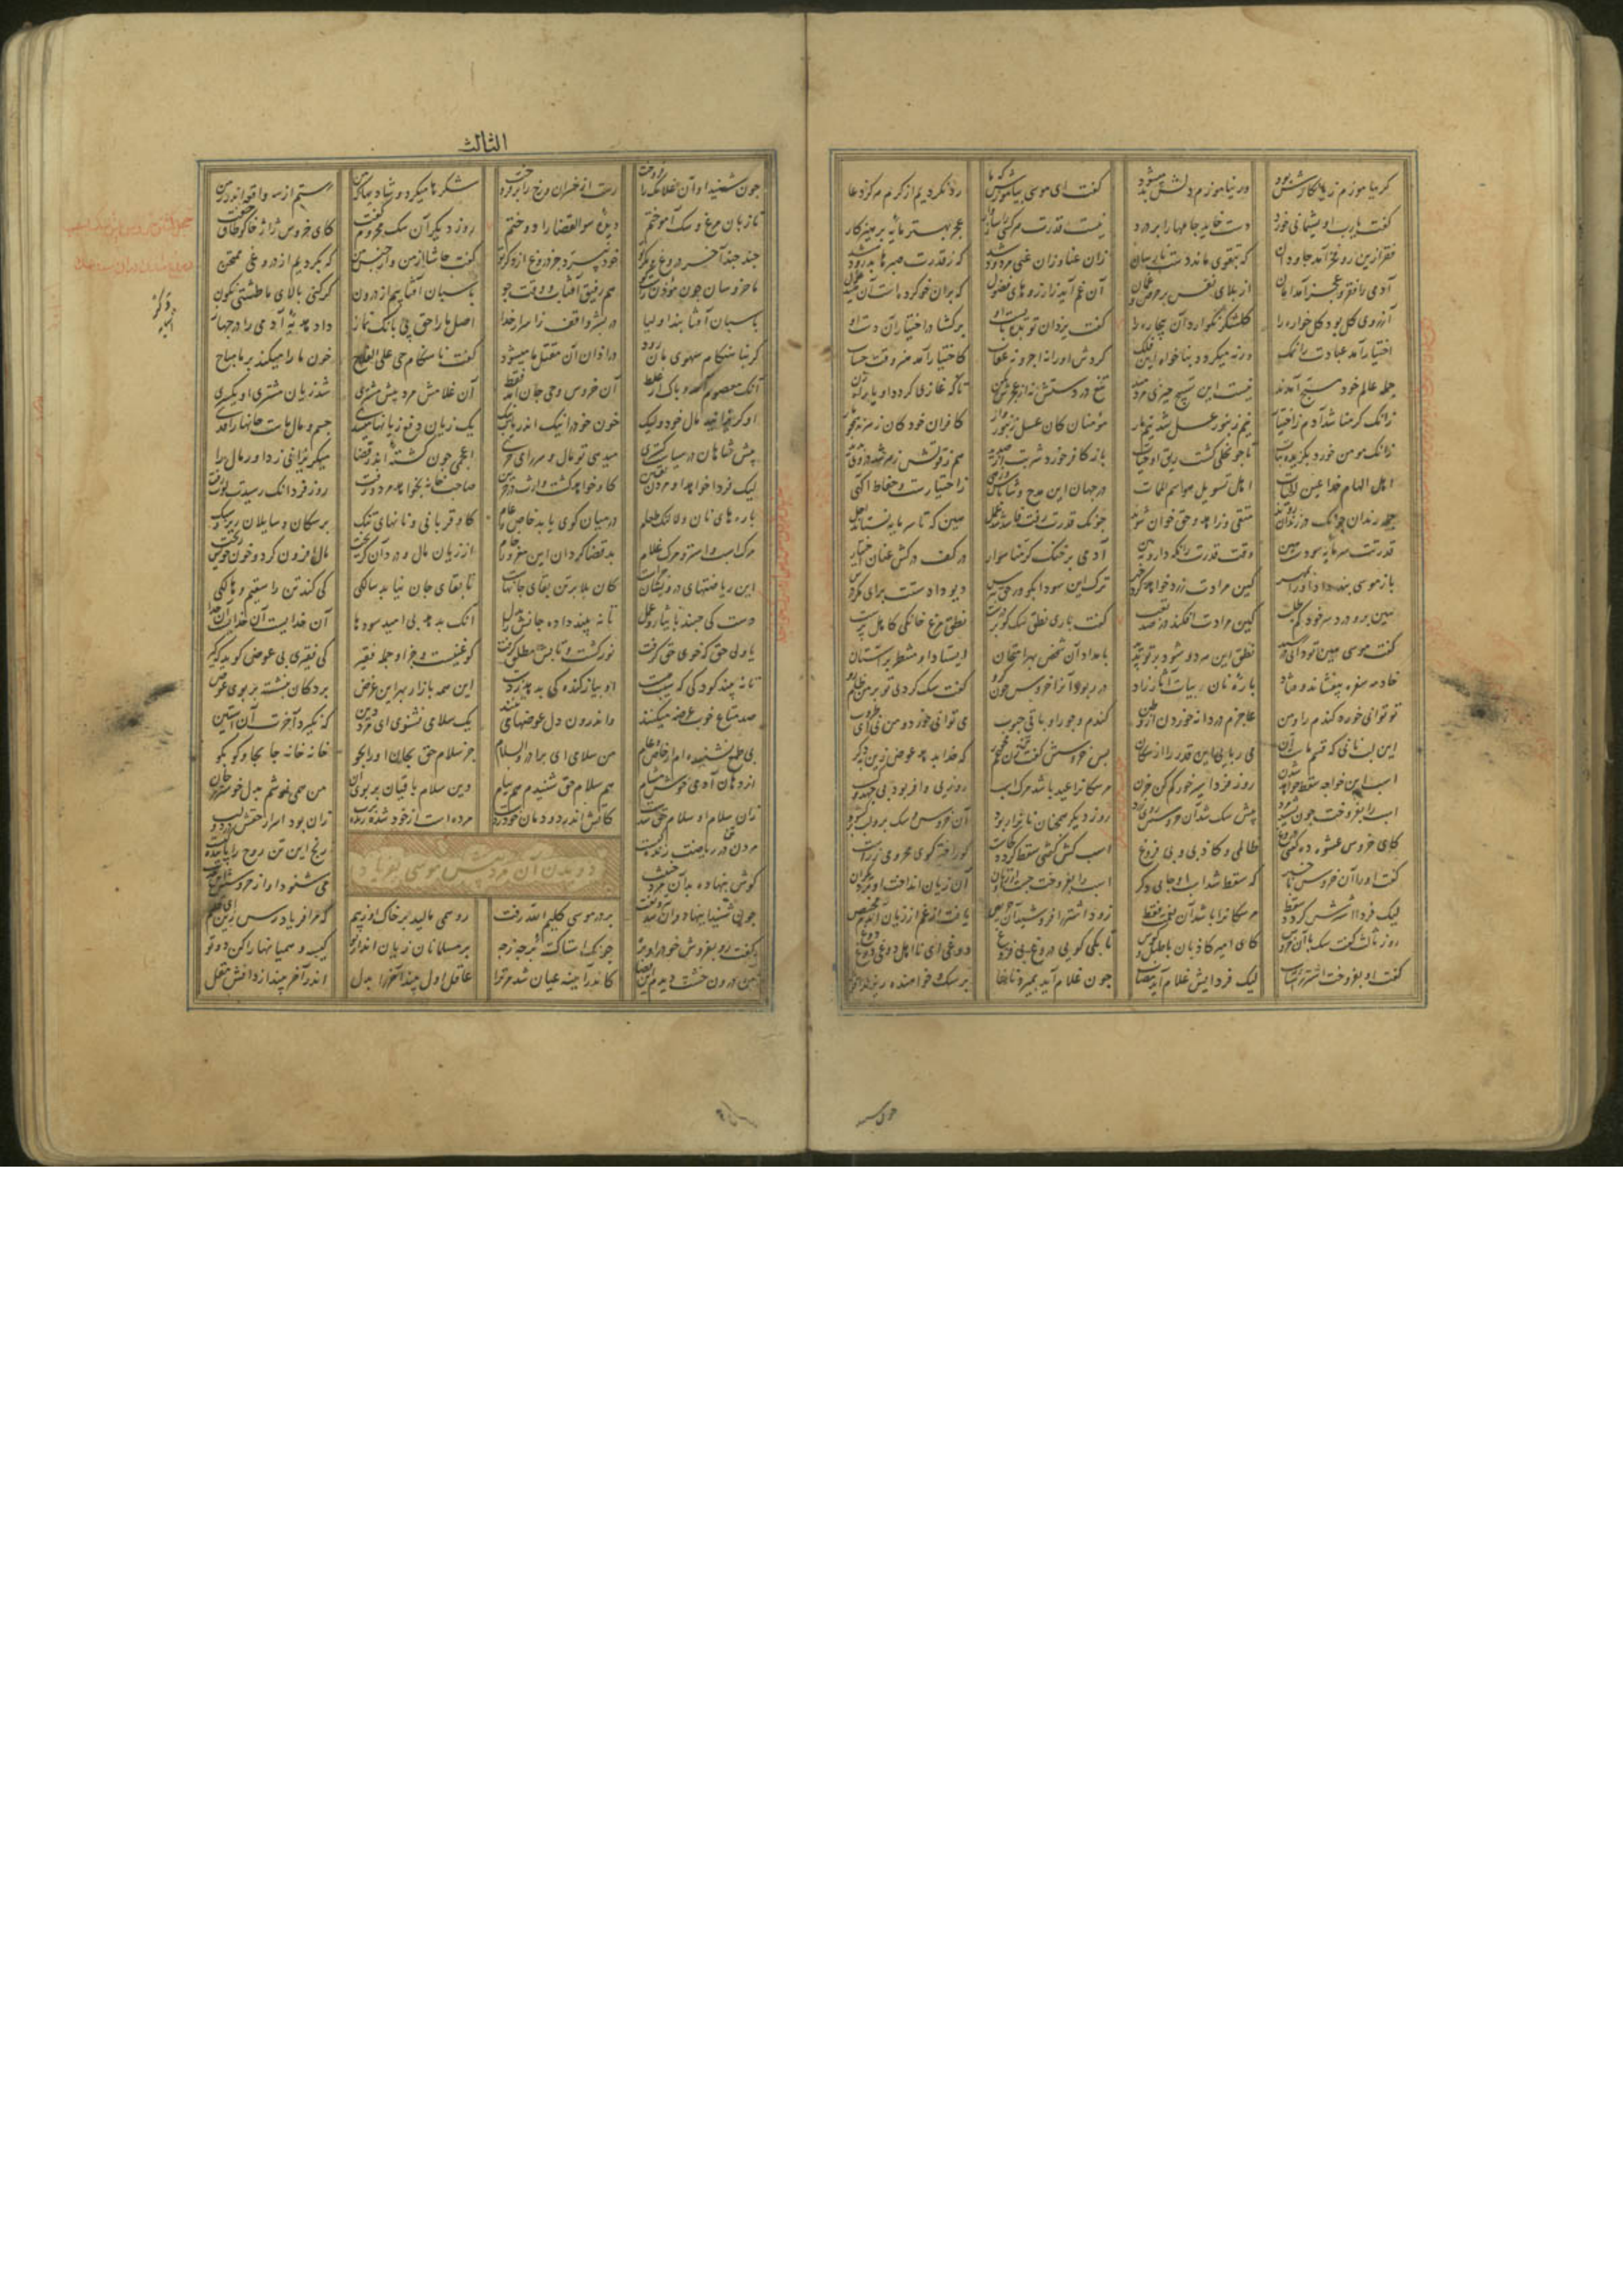 کر بیاموزم زیانکارش بود ور نیاموزم دلش بد میشود کفت ای موسی بیاموزش که ما رد نکردیم از کرم هرکز دعا
کفت یارب او پشیمانی خورد دست خاید جامها را بر درد نیست قدرت هر کسی را سازوار عجز بهتر مایه پرهیزکار
فقر ازین رو فخر آمد جاودان که بتقوی ماند دست نارسان زان غنا و زان غنی مردود شد که ز قدرت صبرها بدرود شد
آدمی را فقر و عجز آمد امان از بلای نفس پر حرص و غمان آن غم آید ز آرزوهای فضول که بدان خو کرده است آن صید غول
آرزوی کل بود کل خواره را کلشکر نکوارد آن بیچاره را کفت یزدان تو بده بایست او برکشا در اختیار آن دست او
اختیار آمد عبادت را نمک ورنه میکردد بناخواه این فلک کردش او را نه اجر و نه عقاب کاختیار آمد هنر وقت حساب
جمله عالم خود مسبح آمدند نیست این تسبیح جبری مزدمند تیغ در دستش نه از عجزش بکن تاکه غازی کردد او یا راه زن
زانک کرمنا شد آدم ز اختیار نیم زنبور عسل شد نیم مار مؤمنان کان عسل زنبوروار کافران خود کان زهری همچو مار
زانک مومن خورد بکزیده نبات تا چو نحلی کشت ریق او حیات باز کافر خورد شربت از صدید هم ز قوتش زهر شد در وی پدید
اهل الهام خدا عین الحیات اهل تسویل هوا سم الممات در جهان این مدح و شاباش و زهی ز اختیارست و حفاظ آکهی
جمله رندان چونک در زندان بوند متقی و زاهد و حق خوان شوند چونک قدرت رفت کاسد شد عمل هین که تا سرمایه نستاند اجل
قدرتت سرمایه سودست هین وقت قدرت را نکه دار و ببین آدمی بر خنک کرمنا سوار در کف درکش عنان اختیار
باز موسی پند داد او را بمهر کین مرادت زرد خواهد کرد چهر ترک این سودا بکو وز حق بترس دیو دادستت برای مکر درس
هین برو درد سر خود کم طلب کین مرادت افکند در صد تعب کفت باری نطق سک کو بر درست نطق مرغ خانکی کاهل پرست
کفت موسی هین تو دانی رو رسید نطق این هر دو شود بر تو پدید بامداد آن شخص بهر امتحان ایستاد او منتظر بر آستان
خادمه سفره بیفشاند و فتاد پاره نان بیات آثار زاد در ربود آنرا خروسی چون کرو کفت سک کردی تو بر من ظلم رو
تو توانی خورد کندم را و من عاجزم در دانه خوردن از وطن کندم و جو را و باقی حبوب می توانی خورد و من نی ای طروب
این لب نانی که قسم ماست آن می ربایی این قدر را از سکان پس خروسش کفت تن زن غم مخور که خدا بدهد عوض زین دکر
اسب این خواجه سقط خواهد شدن روز فردا سیر خور کم کن حزن مر سکانرا عید باشد مرک اسب روزیی وافر بود بی جهد و کسب
اسب را بفروخت چون بشنود مرد پیش سک شد آن خروسش روی زرد روز دیکر همچنان نانرا ربود آن خروس و سک برو لب برکشود
کای خروس عشوه ده چند این دروغ ظالمی و کاذبی و بی فروغ اسب کش کفتی سقط کردد کجاست کور اختر کوی محرومی ز راست
کفت او را آن خروس با خبر که سقط شد اسب او جای دکر اسب را بفروخت جست او از زیان آن زیان انداخت او بر دیکران
لیک فردا استرش کردد سقط مر سکانرا باشد آن نعمت فقط زود استر را فروشید آن حریص یافت از غم از زیان آن دم محیص
روز ثالث کفت سک با آن خروس کای امیر کاذبان با طبل و کوس تا بکی کویی دروغ بی فروغ دوغی ای نااهل دوغی دوغ دوغ
کفت او بفروخت استر را شتاب لیک فردایش غلام آید مصاب چون غلام او بمیرد نانها بر سک و خواهنده ریزند اقربا
الثالث
چون شنید او آن غلامک را فروخت رست از خسران و رخ را برفروخت شکرها میکرد و شادیها که من رستم از سه واقعه اندر زمن
تا زبان مرغ و سک آموختم دیده سوء القضا را دوختم روز دیکر آن سک محروم کفت کای خروس ژاژخا کو طاق و جفت
چند چند آخر دروغ و مکر تو خود نپرد جز دروغ از وکر تو کفت حاشا از من و از جنس من که بکردیم از دروغی ممتحن
ما خروسان چون مؤذن راست کوی هم رقیب آفتاب و وقت جوی پاسبان آفتابیم از درون کر کنی بالای ما طشتی نکون
پاسبان آفتابند اولیا در بشر واقف ز اسرار خدا اصل ما را حق پی بانک نماز داد هدیه آدمی را در جهاز
کر بناهنکام سهوی مان رود در اذان آن مقتل ما میشود کفت ناهنکام حی علی الفلاح خون ما را میکند بر ما مباح
آنک معصوم آمد و پاک از غلط آن خروس وحی جان آمد فقط آن غلامش مرد پیش مشتری شد زیان مشتری او یکسری
او کریزانید مال خود ولیک خون خود را ریخت اندر یاب نیک یک زیان دفع زیانها میشدی جسم و مال ماست جانها را فدی
پیش شاهان در سیاست کستری میدهی تو مال و سر را میخری اعجمی چون کشته اندر قضا میکریزانی ز داور مال را
لیک فردا خواهد او مردن یقین کاو خواهد کشت وارث در حنین صاحب خانه بخواهد مرد و رفت روز فردا نک رسیدت لوت زفت
پاره های نان و لالنک طعام در میان کوی یابد خاص و عام کاو قربانی و نانهای تنک بر سکان و سایلان ریزد سبک
مرک اسب و استر و مرک غلام بد قضا کردان این مغرور خام از زیان مال و درد آن کریخت مال افزون کرد و خون خویش ریخت
این ریاضتهای درویشان چراست کان بلا بر تن بقای جانهاست تا بقای جان نیابد سالکی کی کند تن را سقیم و هالکی
دست کی جنبد بایثار و عمل تا نبیند داده جانش بدل آنک بدهد بی امید سودها آن خدایست آن خدایست آن خدا
یا ولی حق که خوی حق کرفت نور کشت و تابش مطلق کرفت کو غنیست و جز او جمله فقیر کی فقیری بی عوض کوید بکیر
تا نبیند کودکی که سیب هست او پیاز کنده کی بدهد ز دست این همه بازار بهر این غرض بر دکان بنشسته بر بوی عوض
صد متاع خوب عرضه میکنند و اندرون دل عوضها می تنند یک سلامی نشنوی ای مرد دین که نکیرد آخرت آن آستین
بی طمع نشنیده ام از خاص و عام من سلامی ای برادر والسلام جز سلام حق بجان او را بجو خانه خانه جا بجا و کو بکو
از دهان آدمی خوش مشام هم سلام حق شنیدم هم پیام وین سلام باقیان بر بوی آن من همی نوشم بدل خوشتر ز جان
زان سلام او سلام حق شدست کاتش اندر دودمان خود زدست مرده است از خود شده زنده برب زان بود اسرار حقش در دو لب
مردن تن در ریاضت زندکیست رنج این تن روح را پایندکیست
کوش بنهاده بد آن مرد خبیث می شنود او از خروسش این حدیث
دویدن آن مرد پیش موسی بفریاد
چون شنید اینها دوان شد تیز و تفت بر در موسی کلیم الله رفت رو همی مالید بر خاک او ز بیم که مرا فریاد رس زین ای کلیم
کفت رو بفروش خود را و بره چونک استا کشته بر جه ز چه بر مسلمانان زیان انداز تو کیسه و همیانها را کن دوتو
من درون خشت دیدم این قضا کاندر آیینه عیان شد مر ترا عاقل اول بیند آخر را بدل اندر آخر بیند از دانش مقل